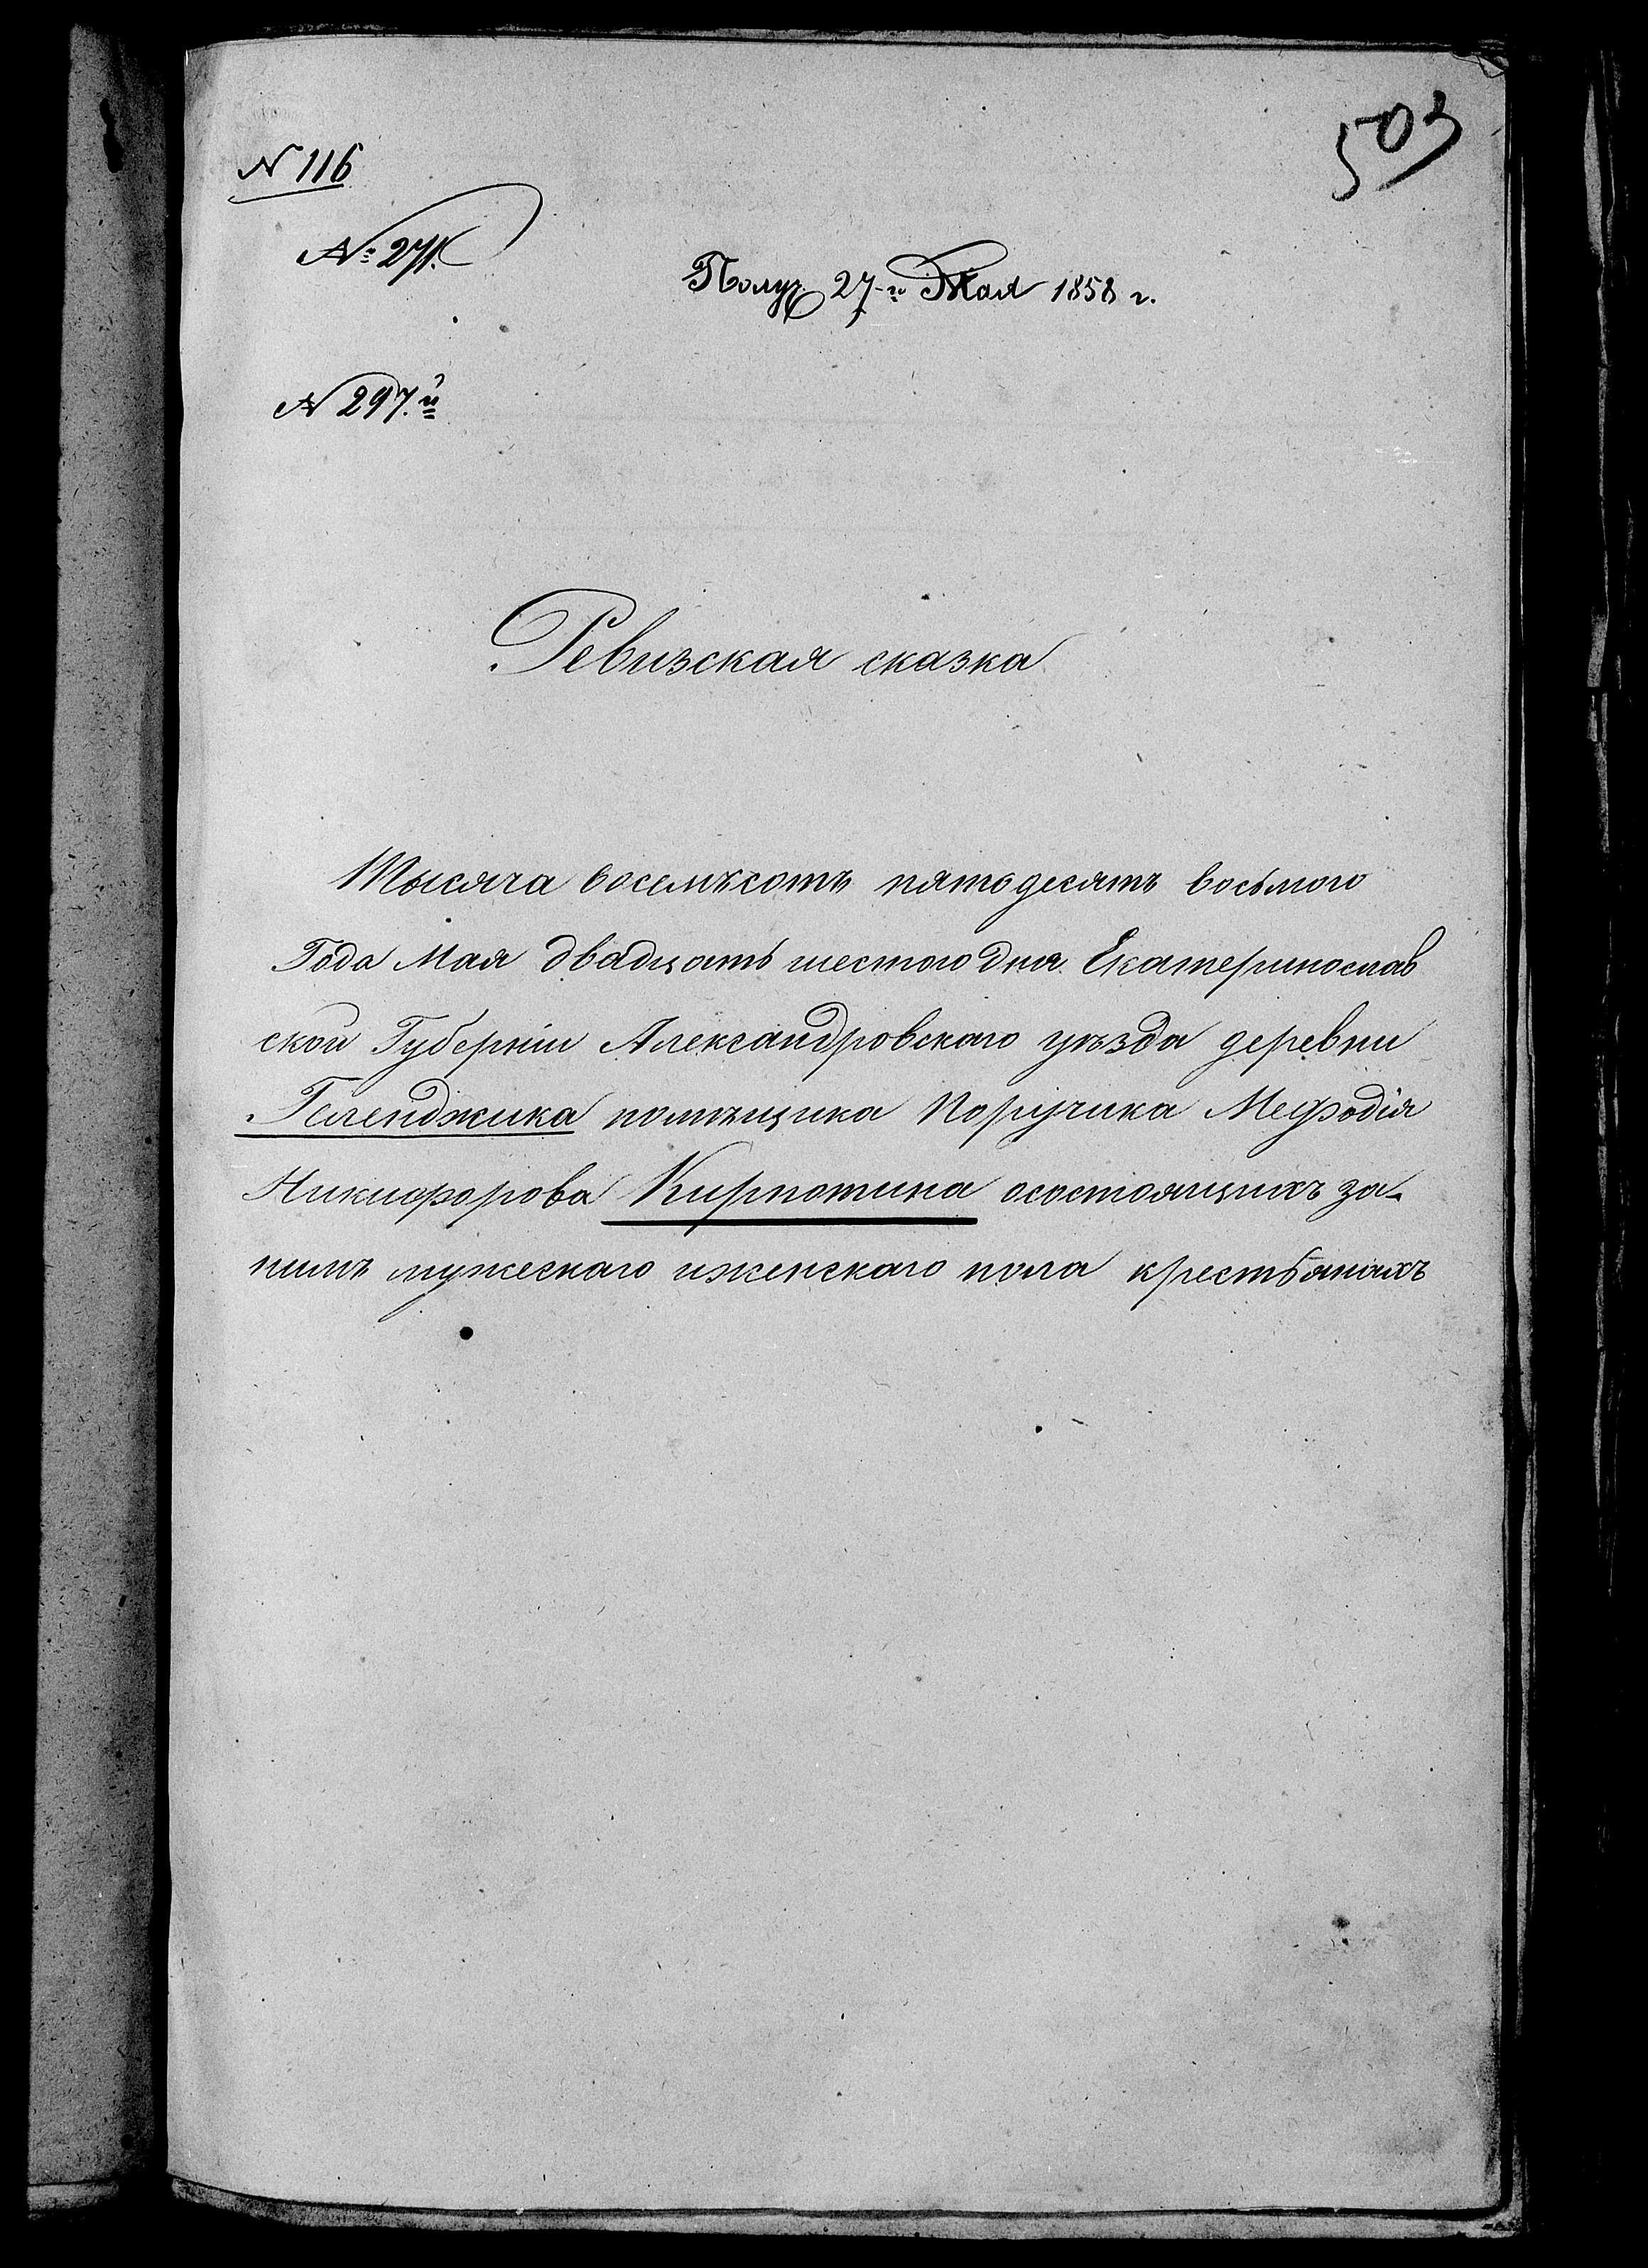 503
N 116
№ 271.
Получ. 27-го Мая 1858 г.
N 297.й
Ревизская сказка
Тысяча восемъсотъ пятьдесятъ восьмого
Года Мая двадцать шестого дня Екатеринослав
ской Губерніи Александровскаго уѣзда деревни
Геленджика помѣщика Поручика Мефодія
Никифорова Кирпотина осостоящихъ за
нимъ мужескаго иженскаго пола крестьянахъ